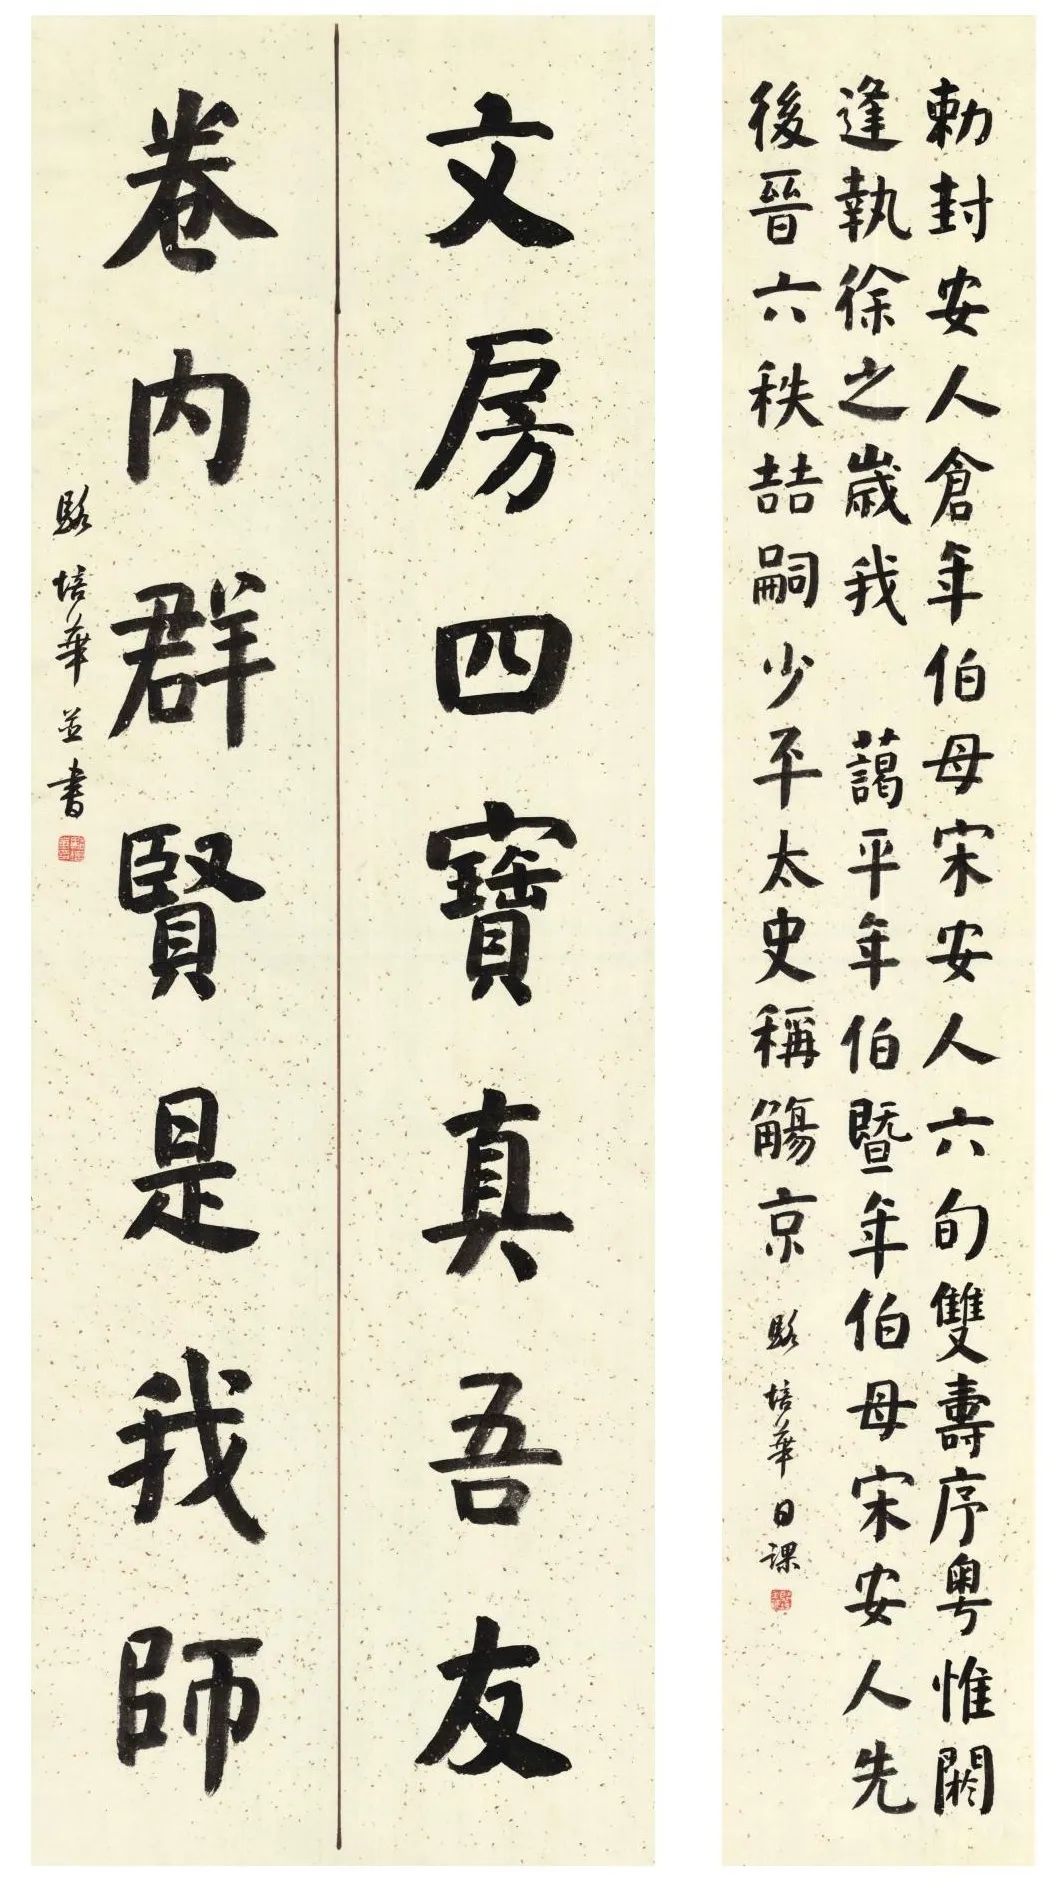 勅封安人倉年伯母宋安人六旬雙壽序粵惟閼
逢執徐之歲我 藹平年伯暨年伯母宋安人先
後晉六秩喆嗣少平太史稱觴京
駱培華日課
文房四寶真吾友
卷內群賢是我師
駱培華並書